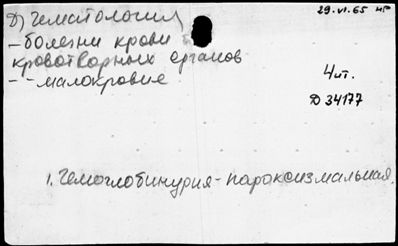 Д) Гематология
29.VI.65 нг
- болезни крови и
кроветворных органов
- " - малокровие
4 ит.
Д 34177
1. Гемоглобинурия - пароксизмальная.